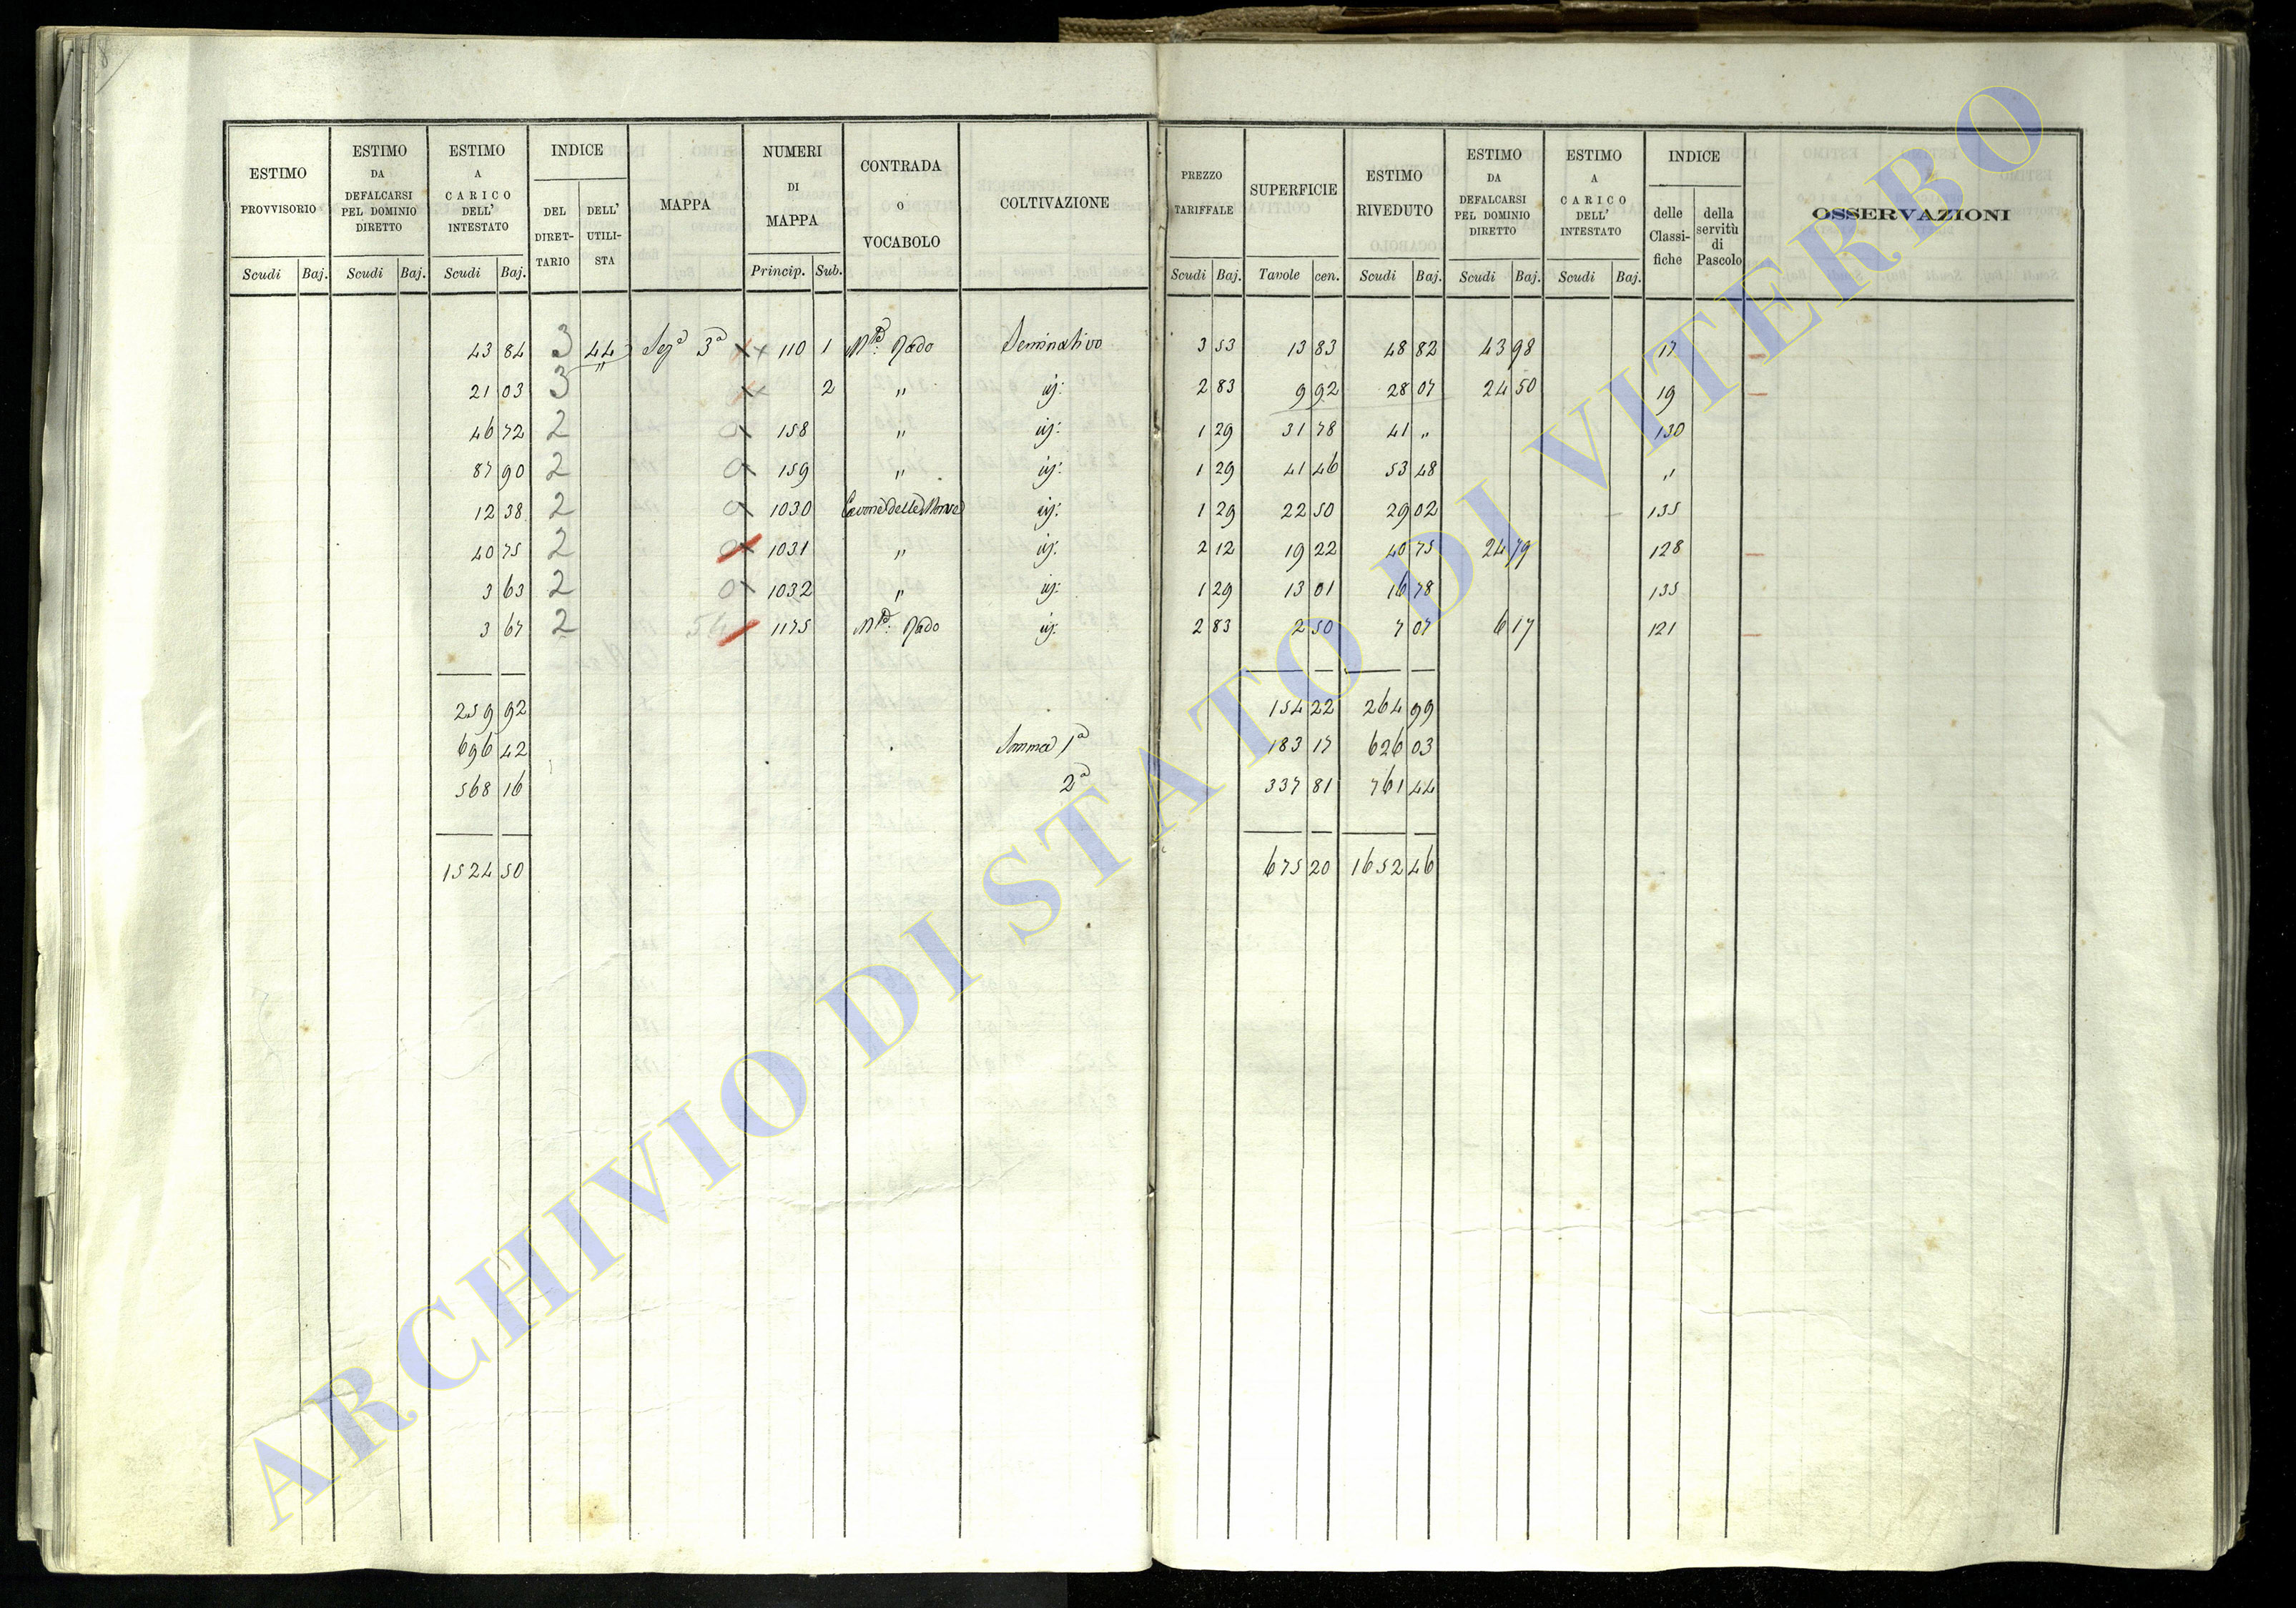 8
ESTIMO PROVVISORIO | ESTIMO DA DEFALCARSI PEL DOMINIO DIRETTO | ESTIMO A CARICO DELL' INTESTATO | INDICE DEL DIRET-TARIO | DELL' UTILI-STA | MAPPA | NUMERI DI MAPPA | CONTRADA o VOCABOLO | COLTIVAZIONE | PREZZO TARIFFALE | SUPERFICIE | ESTIMO RIVEDUTO | ESTIMO DA DEFALCARSI PEL DOMINIO DIRETTO | ESTIMO A CARICO DELL' INTESTATO | INDICE delle Classi-fiche | della servitù di Pascolo | OSSERVAZIONI
Scudi | Baj. | Scudi | Baj. | Scudi | Baj. | Princip. | Sub. | Scudi | Baj. | Tavole | cen. | Scudi | Baj. | Scudi | Baj. | Scudi | Baj.
43 84 | 3 | 44 | Sezª 3ª | 110 | 1 | Rado | Seminativo | 3 53 | 13 83 | 48 82 | 43 98 | 17
21 03 | 3 | " | 2 | " | id: | 2 83 | 9 92 | 28 07 | 24 50 | 19
46 72 | 2 | 158 | " | id: | 1 29 | 31 78 | 41 " | 130
87 90 | 2 | 159 | " | id: | 1 29 | 41 46 | 53 48 | "
12 38 | 2 | 1030 | delle | id: | 1 29 | 22 50 | 29 02 | 135
40 75 | 2 | 1031 | " | id: | 2 12 | 19 22 | 40 75 | 24 79 | 128
3 63 | 2 | 1032 | " | id: | 1 29 | 13 01 | 16 78 | 135
3 67 | 2 | 1175 | Rado | id: | 2 83 | 2 50 | 7 07 | 6 17 | 121
259 92 | 154 22 | 264 99
696 42 | Somma 1ª | 183 17 | 626 03
568 16 | 2ª | 337 81 | 761 44
1524 50 | 675 20 | 1652 46
ARCHIVIO DI STATO DI VITERBO